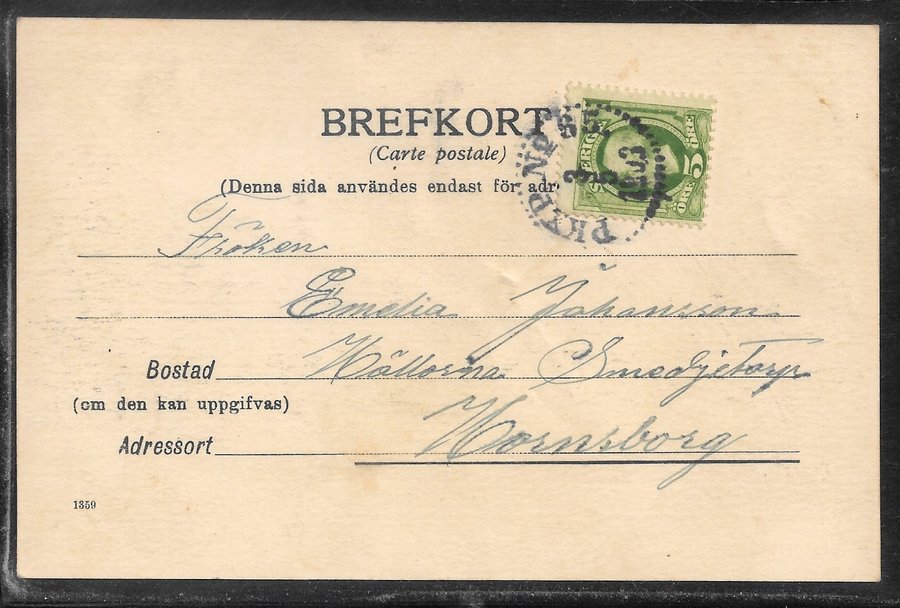 BREFKORT
(Carte postale)
(Denna sida användes endast för adr
SVERIGE
5 ÖRE
ÖRE
PKXP. No 65.
1903
Fröken
Emelia Johansson
Bostad Hällorna Smedjetorp
(om den kan uppgifvas)
Adressort Hornsborg
1359